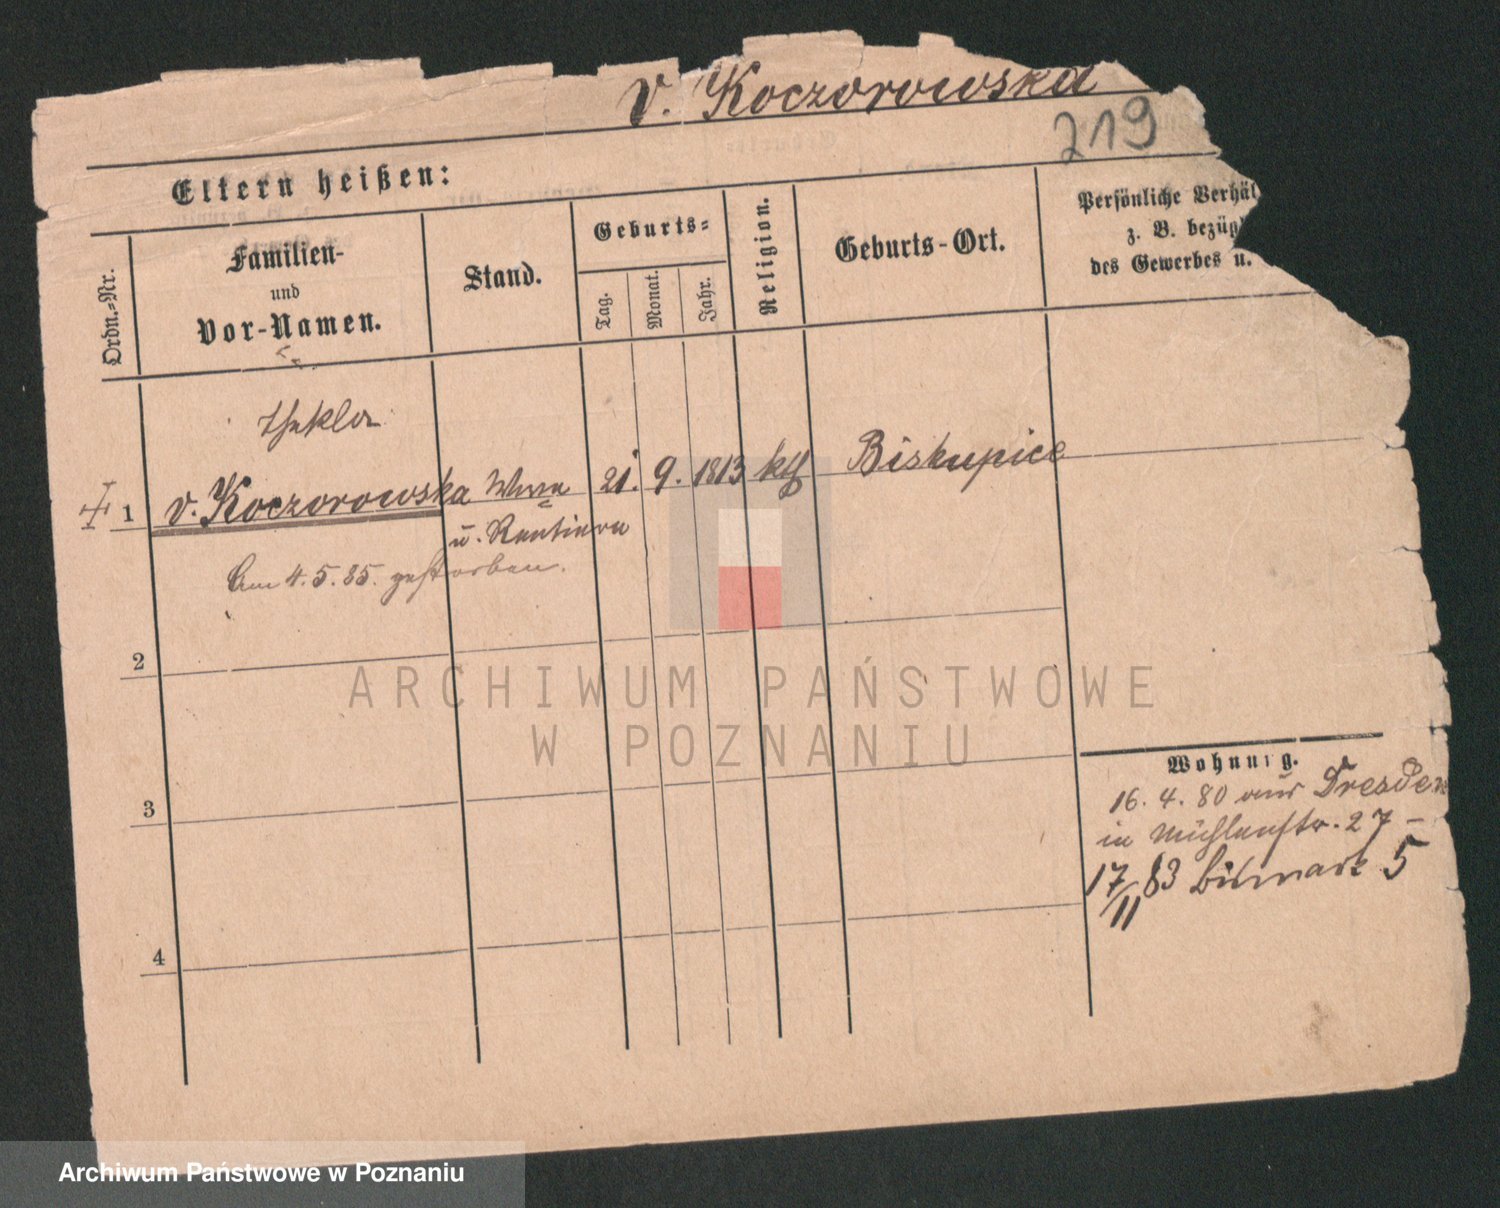 v. Koczorowska
219
Eltern heißen:
Ordn.-Nr.
Familien-
und
Vor-Namen.
Stand.
Geburts-
Tag.
Monat.
Jahr.
Religion.
Geburts-Ort.
Persönliche Verhäl
z. B. bezügl
des Gewerbes u.
Thekla
1 v. Koczorowska Wwe 21. 9. 1813 kth Biskupice
u. Rentiere
Am 4. 5. 85. gestorben.
2
3
4
Wohnung.
16. 4. 80 aus Dresden
in Mühlenstr. 27 –
17/11 83 Bismark 5
ARCHIWUM PAŃSTWOWE
W POZNANIU
Archiwum Państwowe w Poznaniu